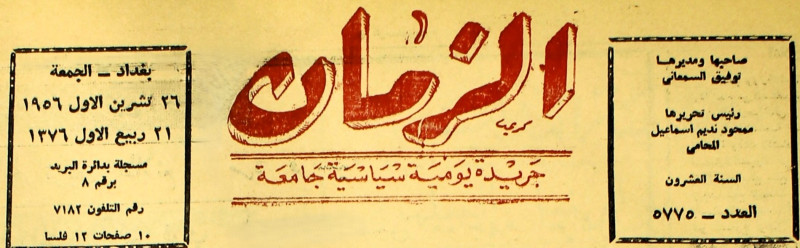 صاحبها ومديرها
توفيق السمعاني
رئيس تحريرها
محمود نديم اسماعيل
المحامي
السنة العشرون
العدد ــ ٥٧٧٥
الزمان
جريدة يومية سياسية جامعة
بغداد ــ الجمعة
٢٦ تشرين الاول ١٩٥٦
٢١ ربيع الاول ١٣٧٦
مسجلة بدائرة البريد
برقم ٨
رقم التلفون ٧١٨٢
١٠ صفحات ١٢ فلسا